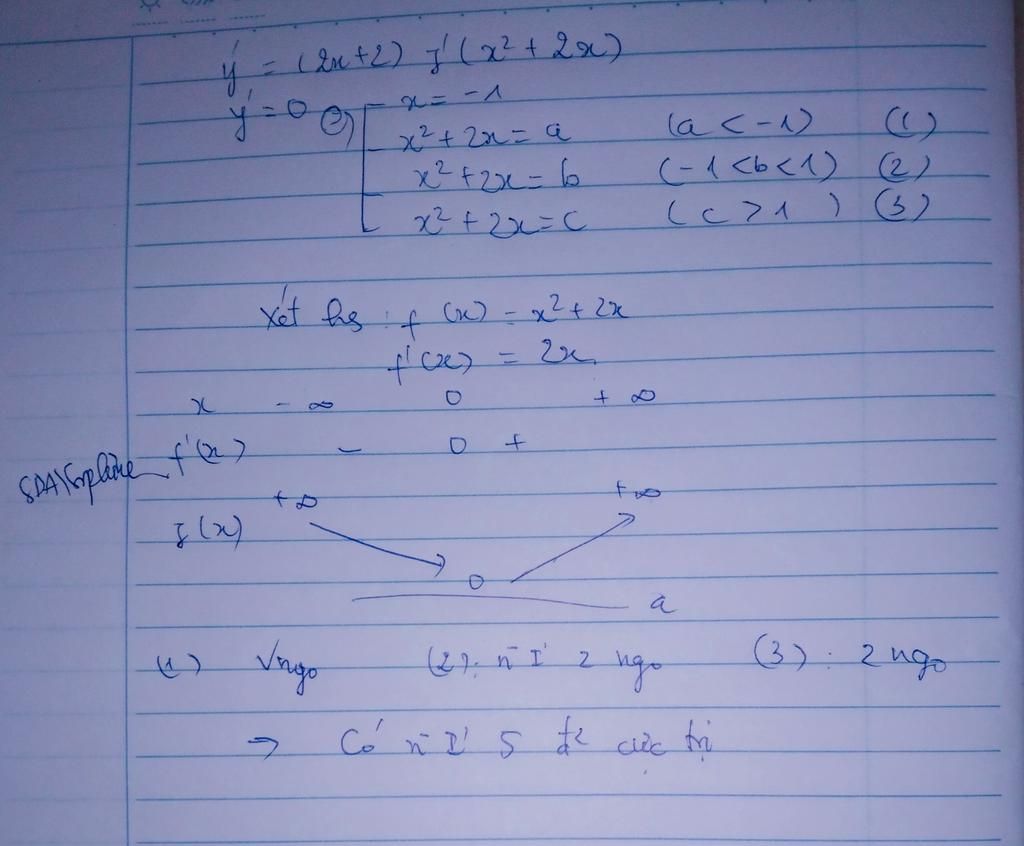 y' = (2x+2) f'(x² + 2x)
y' = 0 ⇔ [ x = -1
x² + 2x = a (a < -1) (1)
x² + 2x = b (-1 < b < 1) (2)
x² + 2x = c (c > 1) (3)
Xét hs: f(x) = x² + 2x
f'(x) = 2x
x -∞ 0 +∞
f'(x) - 0 +
+∞ +∞
f(x)
0
a
(1) Vngo (2): n-I' 2 ngo (3): 2 ngo
→ Có n-I' 5 đ² cực trị